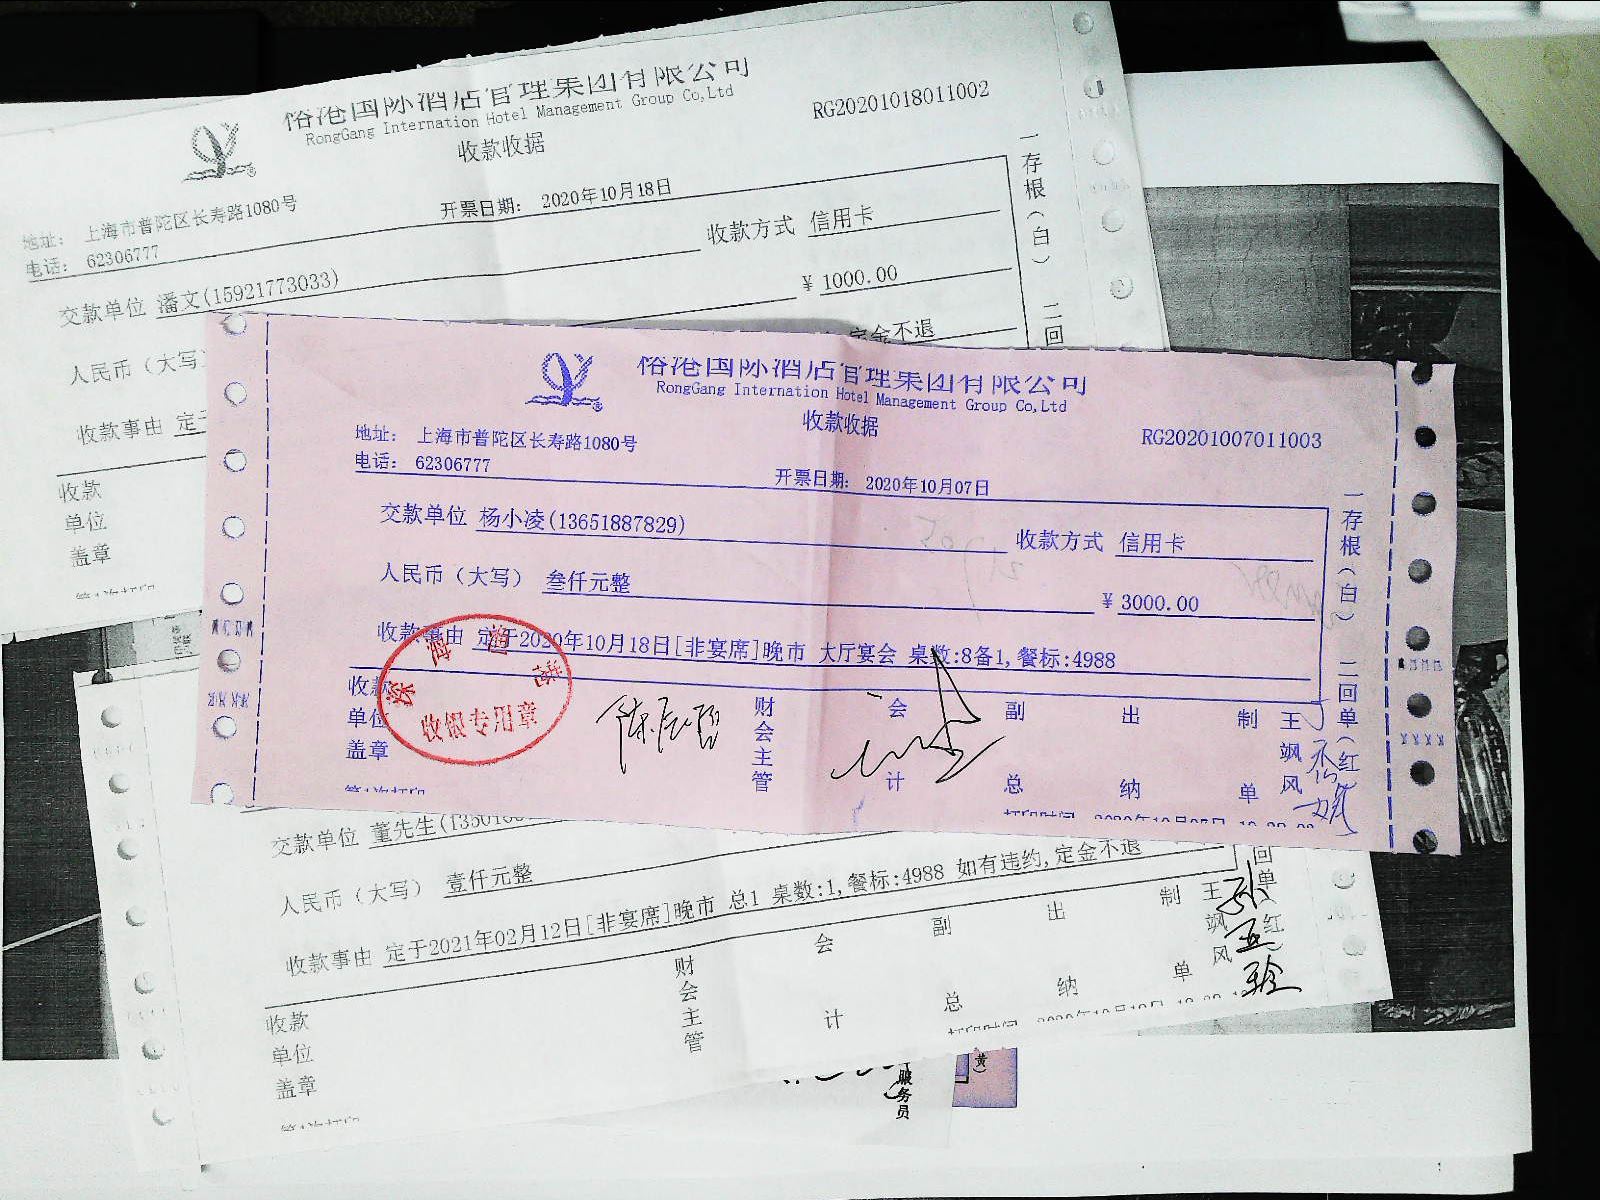 裕港国际酒店管理集团有限公司
RongGang Internation Hotel Management Group Co,Ltd
收款收据
RG20201018011002
地址： 上海市普陀区长寿路1080号
电话： 62306777
开票日期： 2020年10月18日
交款单位 潘文(15921773033)
收款方式 信用卡
人民币（大写）
¥ 1000.00
收款事由 定于
定金不退
收款
单位
盖章
第1次打印
一存根（白） 二回
裕港国际酒店管理集团有限公司
RongGang Internation Hotel Management Group Co,Ltd
收款收据
RG20201007011003
地址： 上海市普陀区长寿路1080号
电话： 62306777
开票日期： 2020年10月07日
交款单位 杨小凌(13651887829)
收款方式 信用卡
人民币（大写） 叁仟元整
¥ 3000.00
收款事由 定于2020年10月18日[非宴席]晚市 大厅宴会 桌数:8备1,餐标:4988
收款
单位
盖章
收银专用章
财会主管
会计
副总
出纳
制单
王飒风
第1次打印
打印时间 2020年10月07日
一存根（白） 二回单（红
交款单位 董先生
人民币（大写） 壹仟元整
收款事由 定于2021年02月12日[非宴席]晚市 总1 桌数:1,餐标:4988 如有违约,定金不退
收款
单位
盖章
财会主管
会计
副总
出纳
制单
王飒风
第1次打印
打印时间
回单（红）
服务员
黄）